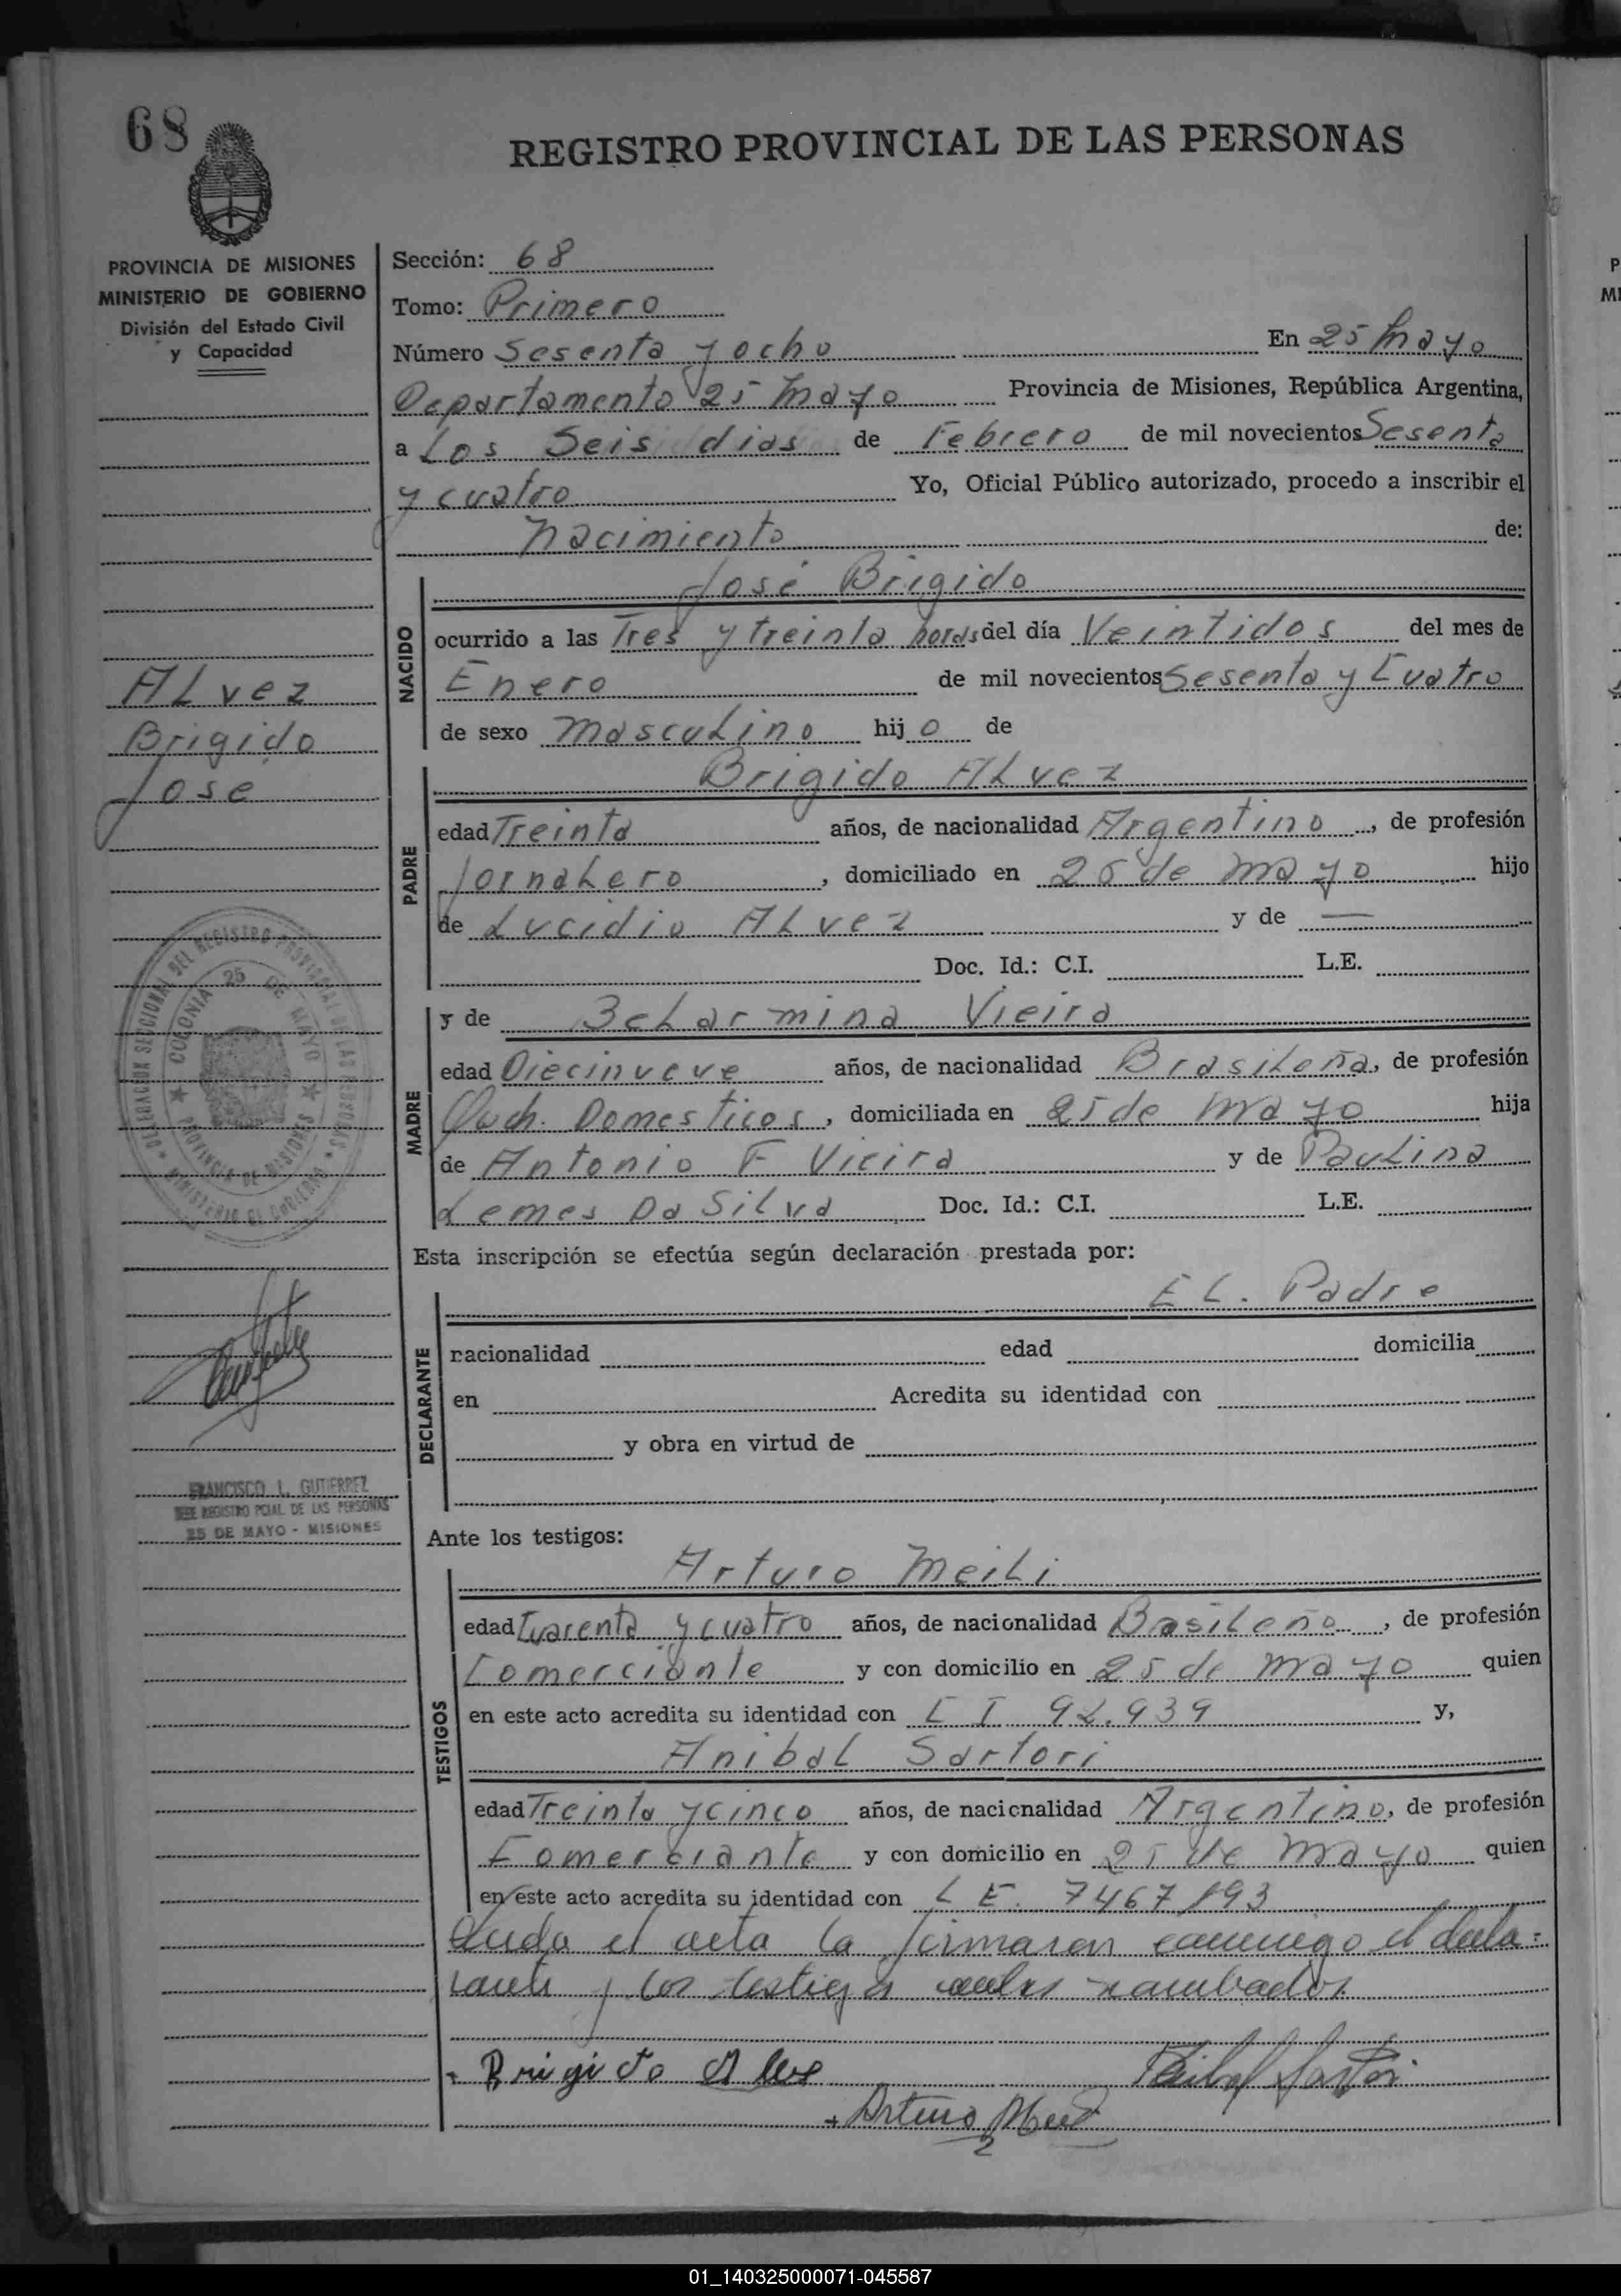 68
REGISTRO PROVINCIAL DE LAS PERSONAS
PROVINCIA DE MISIONES
MINISTERIO DE GOBIERNO
División del Estado Civil
y Capacidad
Sección: 68
Tomo: Primero
Número Sesenta y ocho En 25 Mayo
Departamento 25 Mayo Provincia de Misiones, República Argentina,
a Los Seis dias de Febrero de mil novecientos Sesenta
y cuatro Yo, Oficial Público autorizado, procedo a inscribir el
Nacimiento de:
José Brigido
NACIDO
ocurrido a las Tres y treinta horas del día Veintidos del mes de
Enero de mil novecientos Sesenta y Cuatro
de sexo Masculino hijo de
ALvez
Brigido
Jose
PADRE
Brigido ALvez
edad Treinta años, de nacionalidad Argentino, de profesión
JornaLero, domiciliado en 25 de Mayo hijo
de Lucidio ALvez y de —
Doc. Id.: C.I. L.E.
MADRE
y de BeLarmina Vieira
edad Diecinueve años, de nacionalidad BrasiLeña, de profesión
Domesticos, domiciliada en 25 de Mayo hija
de Antonio F Vieira y de PauLina
Lemes Da SiLva Doc. Id.: C.I. L.E.
DELEGACION SECCIONAL DEL REGISTRO PROVINCIAL DE LAS PERSONAS
MINISTERIO DE GOBIERNO
COLONIA 25 DE MAYO
PROVINCIA DE MISIONES
Esta inscripción se efectúa según declaración prestada por:
DECLARANTE
EL. Padre
nacionalidad edad domicilia
en Acredita su identidad con
y obra en virtud de
FRANCISCO L. GUTIERREZ
JEFE REGISTRO PCIAL DE LAS PERSONAS
25 DE MAYO - MISIONES
Ante los testigos:
TESTIGOS
Arturo MeiLi
edad Cuarenta y cuatro años, de nacionalidad BasiLeño, de profesión
Comerciante y con domicilio en 25 de Mayo quien
en este acto acredita su identidad con C I 92.939 y,
AnibaL Sartori
edad Treinta y cinco años, de nacionalidad Argentino, de profesión
Comerciante y con domicilio en 25 de Mayo quien
en este acto acredita su identidad con L E. 7467193
Leida el acta la firmaron conmigo el decla=
rante y los testigos antes nombrados
Brigido Alves
Arturo
P
01_140325000071-045587